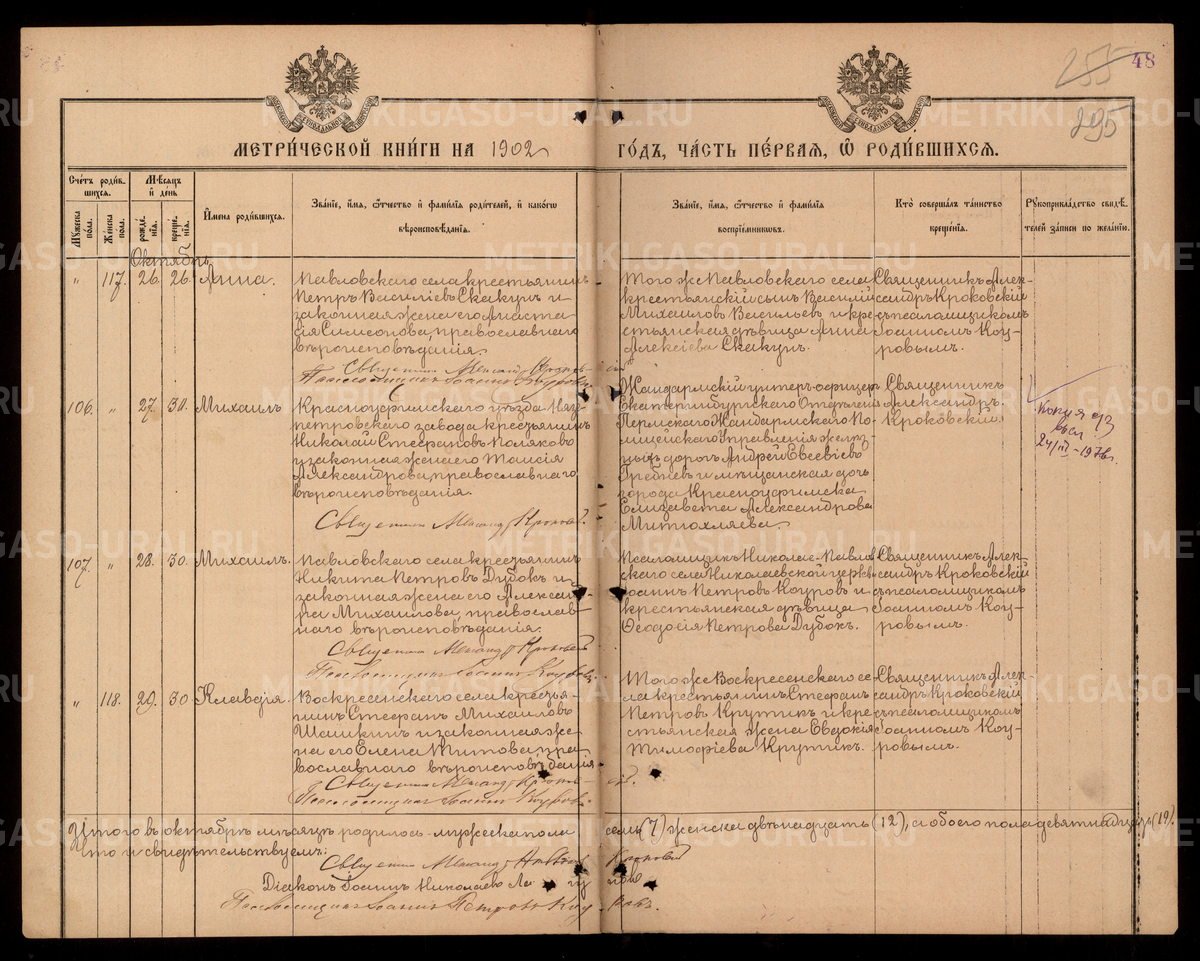 255 48
295
МЕТРИ́ЧЕСКОЙ КНИ́ГИ НА 1902 ГО́ДЪ, ЧА́СТЬ ПЕ́РВАѦ, Ѿ РОДИ́ВШИХСѦ.
Сче́тъ роди́вшихсѧ.
Мѣ́сѧцъ и҆ де́нь
Мꙋ́жеска по́ла.
Же́нска по́ла.
рожде́нїѧ.
креще́нїѧ.
И҆мена̀ роди́вшихсѧ.
Зва́нїе, и҆́мѧ, ѻ҆́тчество и҆ фами́лїѧ роди́телей, и҆ како́гѡ вѣроисповѣ́данїѧ.
Зва́нїе, и҆́мѧ, ѻ҆́тчество и҆ фами́лїѧ воспрїе́мникѡвъ.
Кто̀ соверша́лъ та́инство креще́нїѧ.
Рꙋкоприкла́дство свидѣ́телей за́писи по жела́нїю.
Октябрь
" 117. 26. 26. Анна.
Павловскаго села крестьянинъ
Петръ Василіевъ Скакунъ и
законная жена его Анаста-
сія Симеонова, православнаго
вѣроисповѣданія.
Священникъ Александръ Кроковскій
Псаломщикъ Іоаннъ Коуровъ
Того же Павловскаго села
крестьянскій сынъ Василій
Михаиловъ Васильевъ и кре-
стьянская дѣвица Анна
Алексіева Скакунъ.
Священникъ Алек-
сандръ Кроковскій
съ псаломщикомъ
Іоанномъ Коу-
ровымъ.
106. " 27. 30. Михаилъ
Красноуфимскаго уѣзда Нязе-
петровскаго завода крестьянинъ
Николай Стефановъ Поляковъ
и законная жена его Таисія
Александрова, православнаго
вѣроисповѣданія.
Священникъ Александръ Кроковскій
Жандармскій унтеръ-офицеръ
Екатеринбургскаго Отделенія
Пермскаго Жандармскаго По-
лицейскаго Управленія желѣз-
ныхъ дорогъ Андрей Евсевіевъ
Гребневъ и мѣщанская дочь
города Красноуфимска
Елизавета Александрова
Митюхляева.
Священникъ
Александръ
Кроковскій.
Копия
24/III-197
107. " 28. 30. Михаилъ.
Павловскаго села крестьянинъ
Никита Петровъ Дубокъ и
законная жена его Алексан-
дра Михаилова, православ-
наго вѣроисповѣданія.
Священникъ Александръ Кроковскій
Псаломщикъ Іоаннъ Коуровъ
Псаломщикъ Николае-Павлов-
скаго села Николаевской церкви
Іоаннъ Петровъ Коуровъ и
крестьянская дѣвица
Ѳеодосія Петрова Дубокъ.
Священникъ Алек-
сандръ Кроковскій
съ псаломщикомъ
Іоанномъ Коу-
ровымъ.
" 118. 29. 30 Клавдія.
Воскресенскаго села крестья-
нинъ Стефанъ Михаиловъ
Шашкинъ и законная же-
на его Елена Титова, пра-
вославнаго вѣроисповѣданія
Священникъ Александръ Кроковскій.
Псаломщикъ Іоаннъ Коуровъ
Того же Воскресенскаго се-
ла крестьянинъ Стефанъ
Петровъ Крутикъ и кре-
стьянская жена Евдокія
Тимофіева Крутикъ.
Священникъ Алек-
сандръ Кроковскій
съ псаломщикомъ
Іоанномъ Коу-
ровымъ.
Итого въ октябрѣ мѣсяцѣ родилось мужеска пола семь (7) женска двѣнадцать (12), а обоего пола девятнадцать (19).
Что и свидѣтельствуемъ:
Священникъ Александръ Кроковскій
Діаконъ Іоаннъ Николаевъ
Псаломщикъ Іоаннъ Петровъ Коуровъ.
METRIKI.GASO-URAL.RU